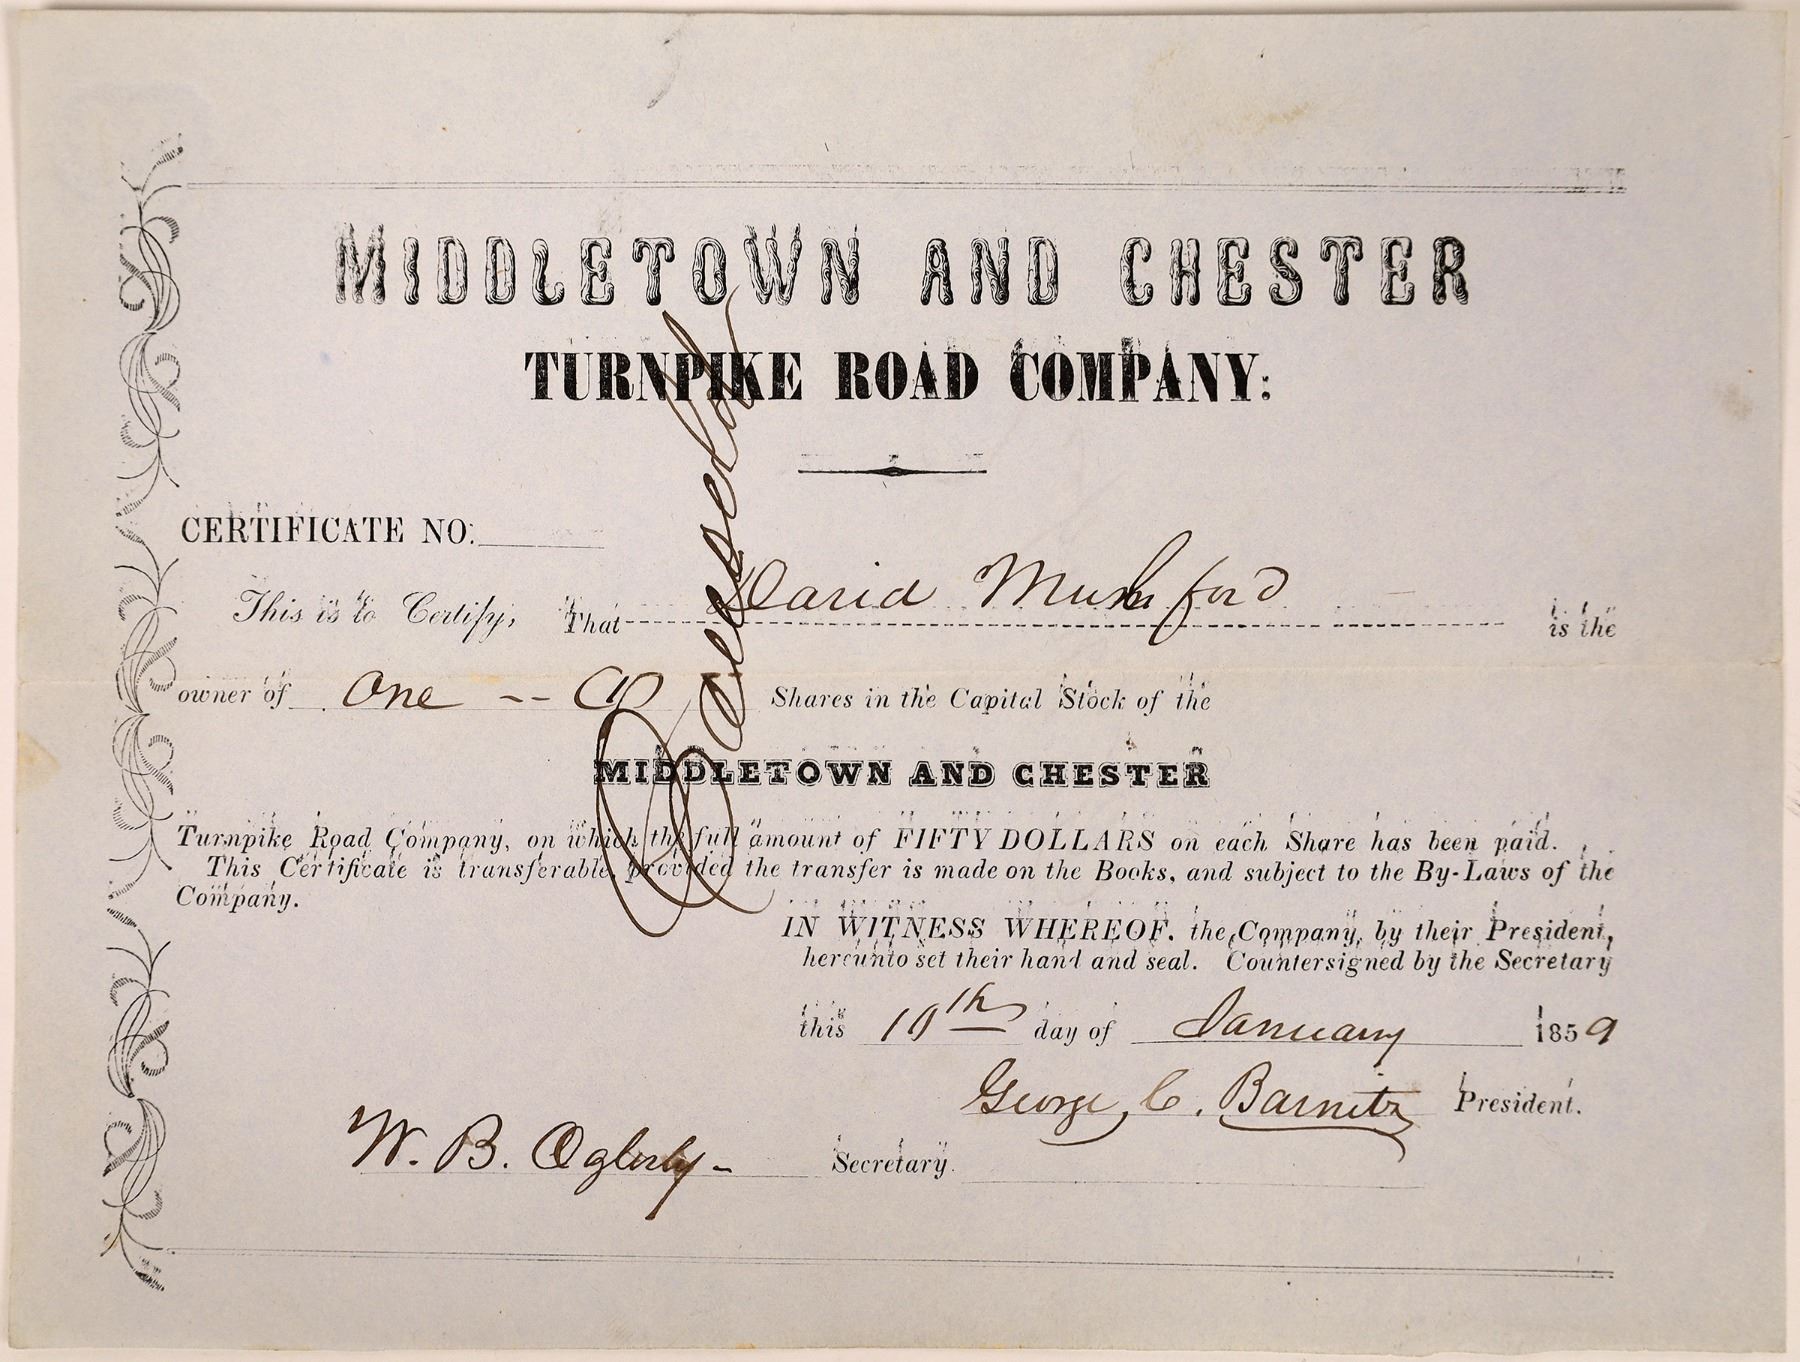 MIDDLETOWN AND CHESTER
TURNPIKE ROAD COMPANY:
CERTIFICATE NO:
This is to Certify, That David Mumford is the
owner of One -- (1) Shares in the Capital Stock of the
MIDDLETOWN AND CHESTER
Turnpike Road Company, on which the full amount of FIFTY DOLLARS on each Share has been paid.
This Certificate is transferable, provided the transfer is made on the Books, and subject to the By-Laws of the
Company.
IN WITNESS WHEREOF. the Company, by their President,
hereunto set their hand and seal. Countersigned by the Secretary
this 10th day of January 1859
George C. Barnitz President.
W. B. Oglesby - Secretary.
Cancelled